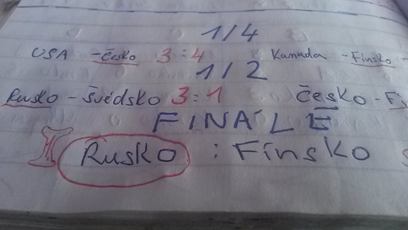 1/4
USA - Česko 3:4 Kanada - Finsko
1/2
Rusko - Švédsko 3:1 Česko - Fi
FINÁLE
Rusko : Finsko